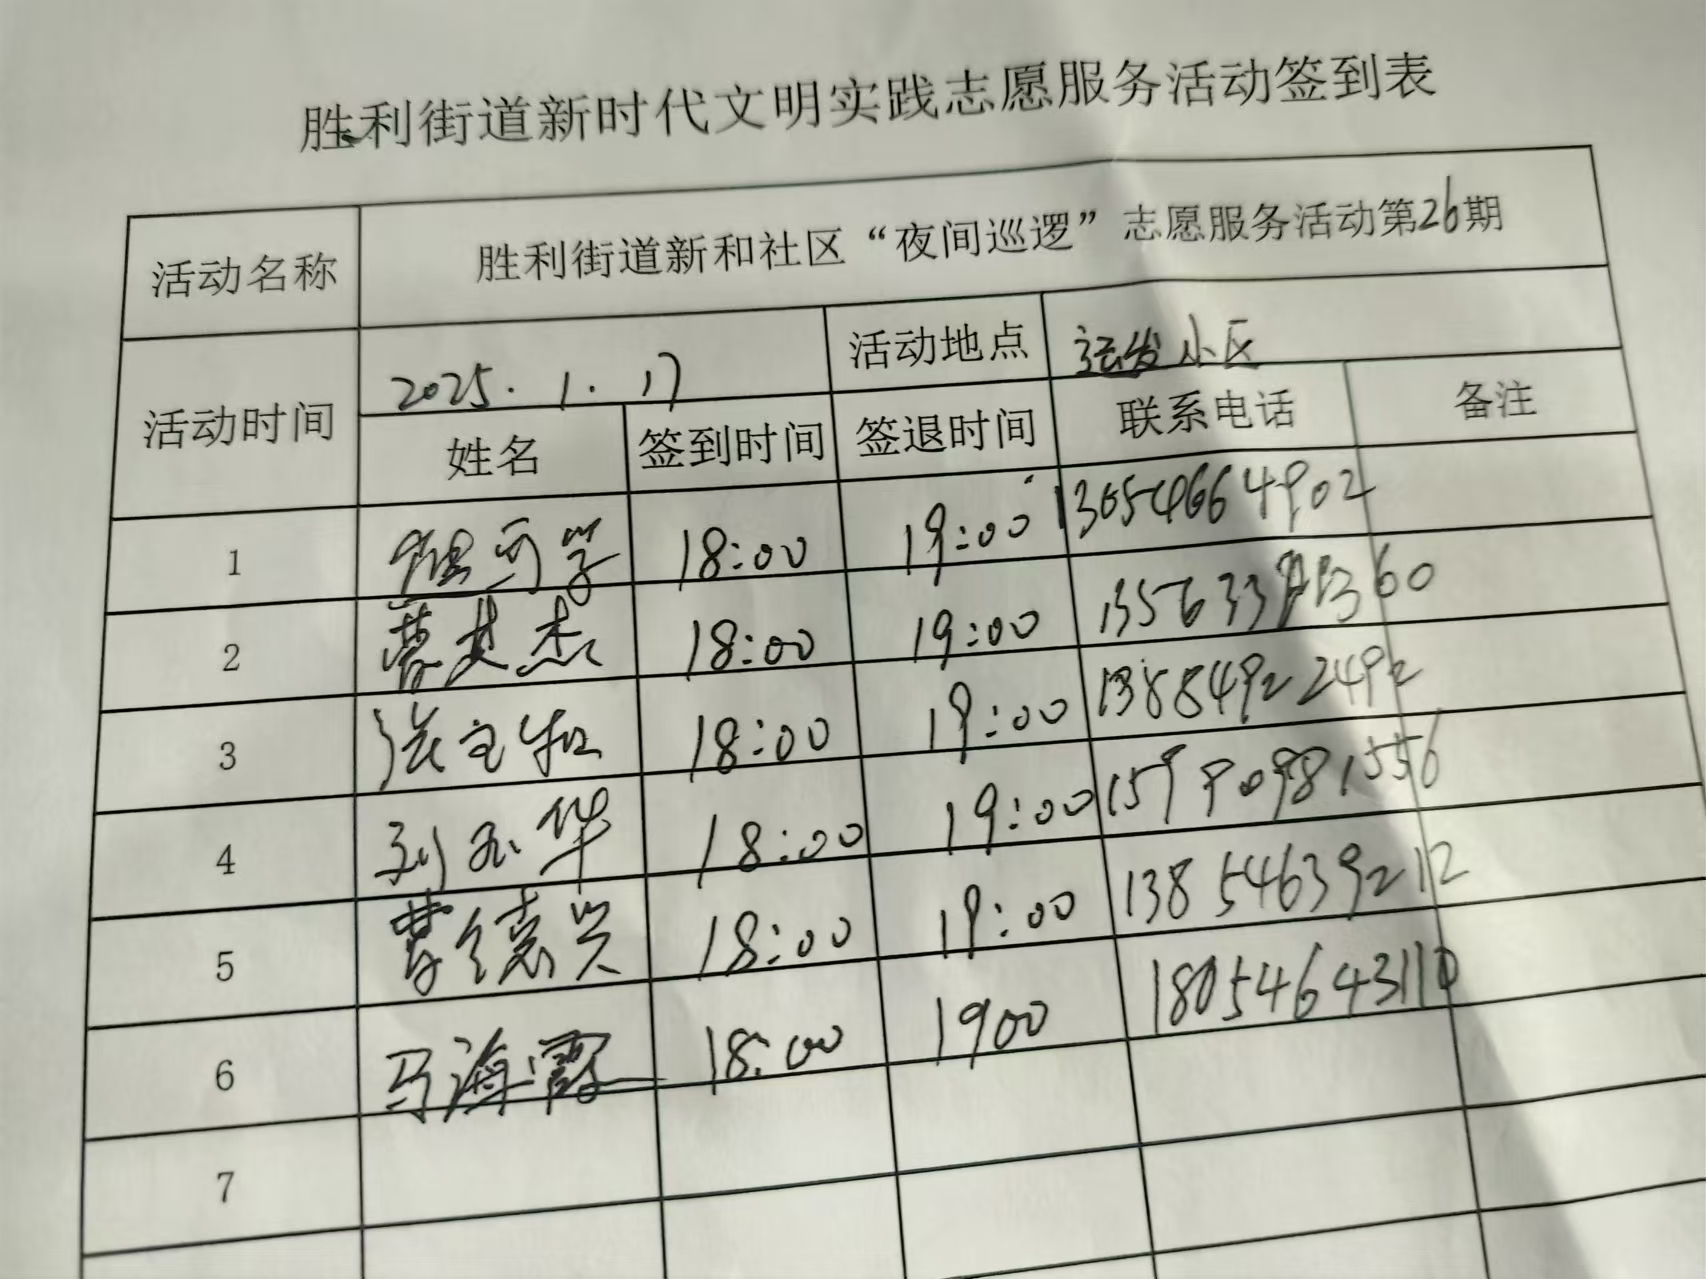 胜利街道新时代文明实践志愿服务活动签到表
活动名称 胜利街道新和社区“夜间巡逻”志愿服务活动第26期
活动时间 2025.1.17 活动地点 小区
姓名 签到时间 签退时间 联系电话 备注
1 18:00 19:00 13054664902
2 曹 杰 18:00 19:00
3 张 18:00 19:00 13884922492
4 刘 华 18:00 19:00 15990981556
5 曹德兴 18:00 19:00 13854639212
6 马海霞 18:00 1900 18054643110
7